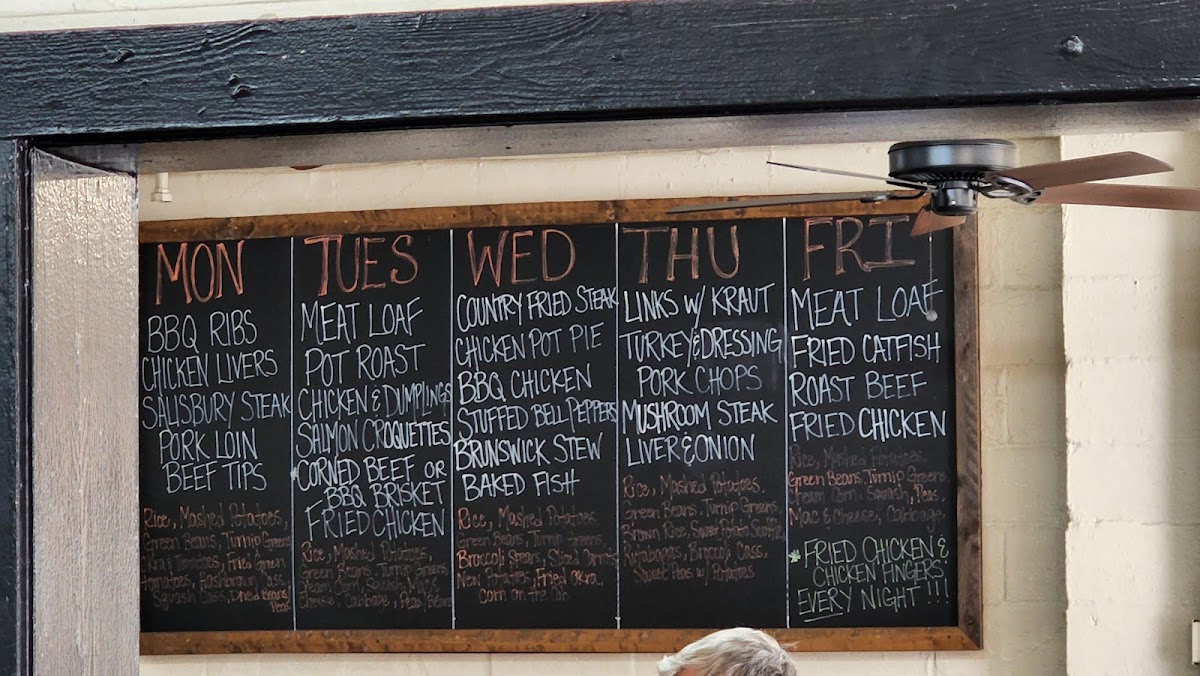 MON
BBQ RIBS
CHICKEN LIVERS
SALISBURY STEAK
PORK LOIN
BEEF TIPS
Rice, Mashed Potatoes,
Green Beans, Turnip Greens
Okra & Tomatoes, Fried Green
Tomatoes, Hashbrown Cass.
Squash Cass, Dried Beans/
Peas
TUES
MEAT LOAF
POT ROAST
CHICKEN & DUMPLINGS
SALMON CROQUETTES
CORNED BEEF OR
BBQ BRISKET
FRIED CHICKEN
Rice, Mashed Potatoes,
Green Beans, Turnip Greens
Cream Corn, Squash, Mac &
Cheese, Cabbage, Peas/Beans
WED
COUNTRY FRIED STEAK
CHICKEN POT PIE
BBQ CHICKEN
STUFFED BELL PEPPERS
BRUNSWICK STEW
BAKED FISH
Rice, Mashed Potatoes
Green Beans, Turnip Greens,
Broccoli Spears, Sliced
New Potatoes, Fried Okra
Corn on the Cob
THU
LINKS W/ KRAUT
TURKEY & DRESSING
PORK CHOPS
MUSHROOM STEAK
LIVER & ONION
Rice, Mashed Potatoes,
Green Beans, Turnip Greens,
Brown Rice, Sweet Potato
Rutabagas, Broccoli Cass.
Sweet Peas w/ Potatoes
FRI
MEAT LOAF
FRIED CATFISH
ROAST BEEF
FRIED CHICKEN
Rice, Mashed Potatoes
Green Beans, Turnip Greens,
Cream Corn, Squash, Peas,
Mac & Cheese, Cabbage
* FRIED CHICKEN &
CHICKEN FINGERS
EVERY NIGHT !!!